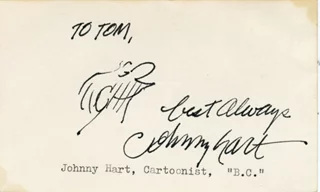 TO TOM,
best always
Johnny hart
Johnny Hart, Cartoonist, "B.C."